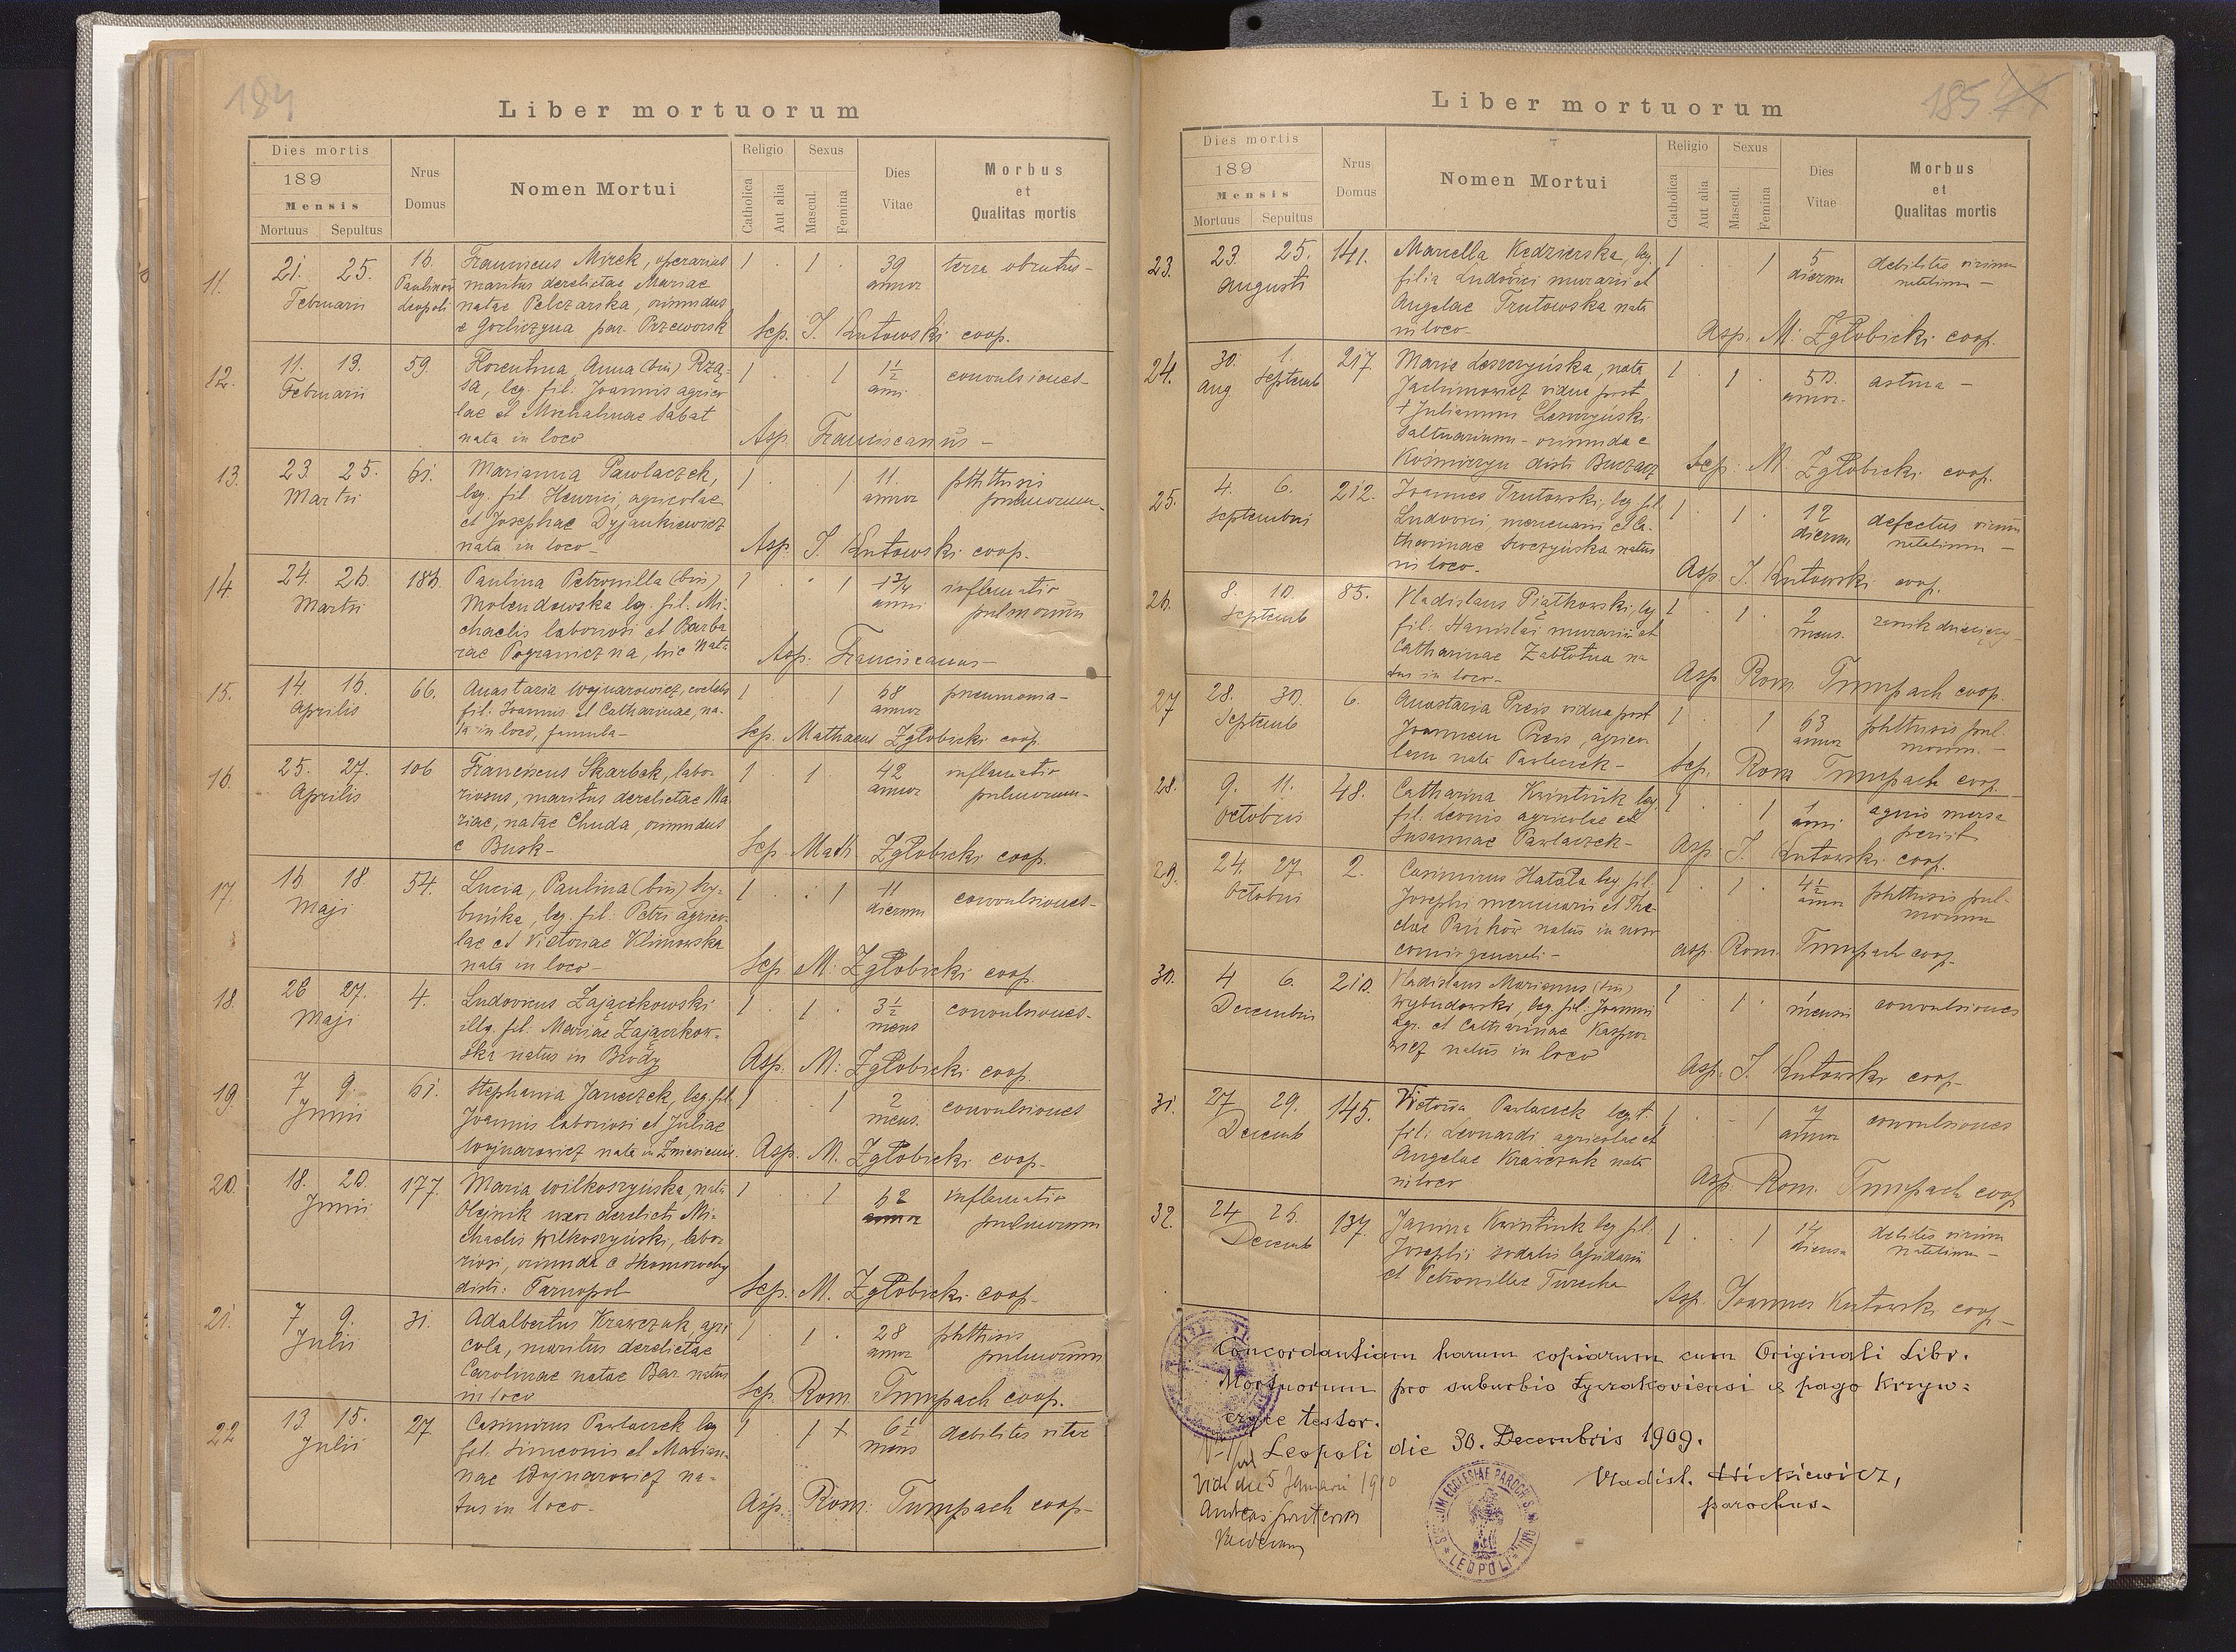 184
Liber mortuorum
Dies mortis
189
Mensis
Mortuus Sepultus
Nrus Domus
Nomen Mortui
Religio
Catholica Aut alia
Sexus
Mascul. Femina
Dies Vitae
Morbus et Qualitas mortis
11. 21. 25. Februarii 16. Leopoli
Franciscus Mirek, operarius
maritus derelictae Mariae
natae Pelczarska, oriundus
e Gorliczyna par. Przeworsk
1 1 39 annor terra obrutus-
Sep. J. Kutowski coop.
12. 11. 13. Februarii 59.
Florentina Anna (bin) Rzą-
sa, leg. fil. Joannis agrico
lae et Michalinae Sabat
nata in loco
1 1 1½ anni convulsiones-
Asp. Franciscanus-
13. 23. 25. Martii 61.
Marianna Pawlaczek,
leg. fil. Henrici, agricolae
et Josephae Dyjankiewicz
nata in loco-
1 1 11. annor phthisis pulmorum-
Asp. J. Kutowski coop.
14. 24. 26. Martii 186.
Paulina Petronilla (bin)
Molendowska leg. fil. Mi-
chaelis laboriosi et Barba
rae Pograniczna, hic nata
1 1 1¾ anni inflamatio pulmorum
Asp. Franciscanus-
15. 14. 16. Aprilis 66.
Anastazia Wojnarowicz, coelebs
fil. Joannis et Catharinae, na-
ta in loco, famula-
1 1 68 annor pneumonia-
Sep. Mathaeus Zgłobicki coop.
16. 25. 27. Aprilis 106
Franciscus Skarbek, labo-
riosus, maritus derelictae Ma
riae, natae Chuda, oriundus
e Busk-
1 1 42 annor inflamatio pulmorum-
Sep. Math. Zgłobicki coop.
17. 16 18. Maji 54.
Lucia, Paulina (bin) Hry-
bińka, leg. fil. Petri agrico-
lae et Victoriae Klimowska
nata in loco-
1 1 11 dierum convulsiones-
Sep. M. Zgłobicki coop.
18. 26 27. Maji 4.
Ludovicus Zajączkowski
illg. fil. Mariae Zajączkow-
ska natus in Brody
1 1 3½ mens convulsiones-
Asp. M. Zgłobicki coop.
19. 7 9. Junii 61.
Stephania Janczek, leg. fil.
Joannis laboriosi et Juliae
Wojnarowicz nata in Zniesienie.
1 1 2 mens. convulsiones
Asp. M. Zgłobicki coop.
20. 18. 20. Junii 177.
Maria Wilkoszyńska, nata
Olejnik uxor derelicti Mi-
chaelis Wilkoszyński, labo-
riosi, oriunda e Skomorochy
distr. Tarnopol
1 1 62 annor inflamatio pulmorum
Sep. M. Zgłobicki coop-
21. 7 9. Julii 31.
Adalbertus Krawczuk agri
cola, maritus derelictae
Carolinae natae Bar natus
in loco
1 1 28 annor phthisis pulmorum
Sep. Rom. Tumpach coop.
22 13. 15. Julii 27
Casimirus Pawlaczek leg
fil. Simeonis et Marian-
nae Wojnarowicz na-
tus in loco-
1 1 + 6½ mens debilitas vitae
Asp. Rom. Tumpach coop-
185
Liber mortuorum
Dies mortis
189
Mensis
Mortuus Sepultus
Nrus Domus
Nomen Mortui
Religio
Catholica Aut alia
Sexus
Mascul. Femina
Dies Vitae
Morbus et Qualitas mortis
23. 23. 25. Augusti 141.
Marcella Kedzierska, leg.
filia Ludovici murarii et
Angelae Trutowska nata
in loco-
1 1 5 dierum debilitas virium
Asp. M. Zgłobicki coop.
24. 30. 1. Aug Septemb 217
Maria Leszczyńska, nata
Jachimowicz vidua post
+ Julianum Leszczyński
Saltuarium- oriunda e
distr. Buczacz
1 1 50. annor. astma-
Sep. M. Zgłobicki coop.
25. 4. 6. Septembri 212.
Joannes Trutowski, leg. fil.
Ludovici, mercenarii et Ca-
tharinae natus
in loco.
1 1 12 dierum defectus virium
Asp J. Kutowski coop.
26. 8. 10. Septemb 85.
Vladislaus Piątkowski, leg
fil. Stanislai murarii et
Catharinae Zabłotna na
tus in loco-
1 1 2 mens.
Asp Rom. Tumpach coop.
27 28. 30. Septemb 6.
Anastazia Preis vidua post
Joannem Preis, agrico-
lam nata Pawlaczek-
1 1 63 annor phthisis pul-
morum.-
Sep. Rom Tumpach coop.
28. 9. 11. Octobris 48.
Catharina Kwintiuk leg.
fil. Leonis agricolae et
Susannae Pawlaczek-
1 1 1 anni aquis mersa
periit
Asp J. Kutowski coop.
29. 24. 27. Octobris 2.
Casimirus Hatala leg fil.
Josephi mercenarii et The-
clae Pańków natus in noso
comio generali-
1 1 4½ annor phthisis pul-
morum
Asp. Rom. Tumpach coop.
30. 4 6. Decembris 210.
Vladislaus Marianus (bin)
Wybudowski, leg. fil. Joannis
agr. et Catharinae Kaspro-
wicz natus in loco
1 1 1 mensis convulsiones
Asp. J. Kutowski coop-
31. 27 29. Decemb 145.
Victoria Pawlaczek legt.
fil. Leonardi agricolae et
Angelae Krawczuk nata
in loco
1 1 7 annor convulsiones
Asp. Rom. Tumpach coop
32. 24 26. Decemb 137.
Janina Kwintiuk leg fil.
Josephi sodalis lapidarii
et Petronillae Turecka
1 1 14 dierum debilitas virium
Asp. Joannes Kutowski coop-
Concordantiam harum copiarum cum Originali Libr.
Mortuorum pro suburbio Łyczakoviensi et pago Krzyw-
czyce testor.
Leopoli die 30. Decembris 1909.
Vladisl. Hickiewicz,
parochus-
Vidi die 5 Januarii 1910
SIGILLUM ECCLESIAE PAROCH. LEOPOLI